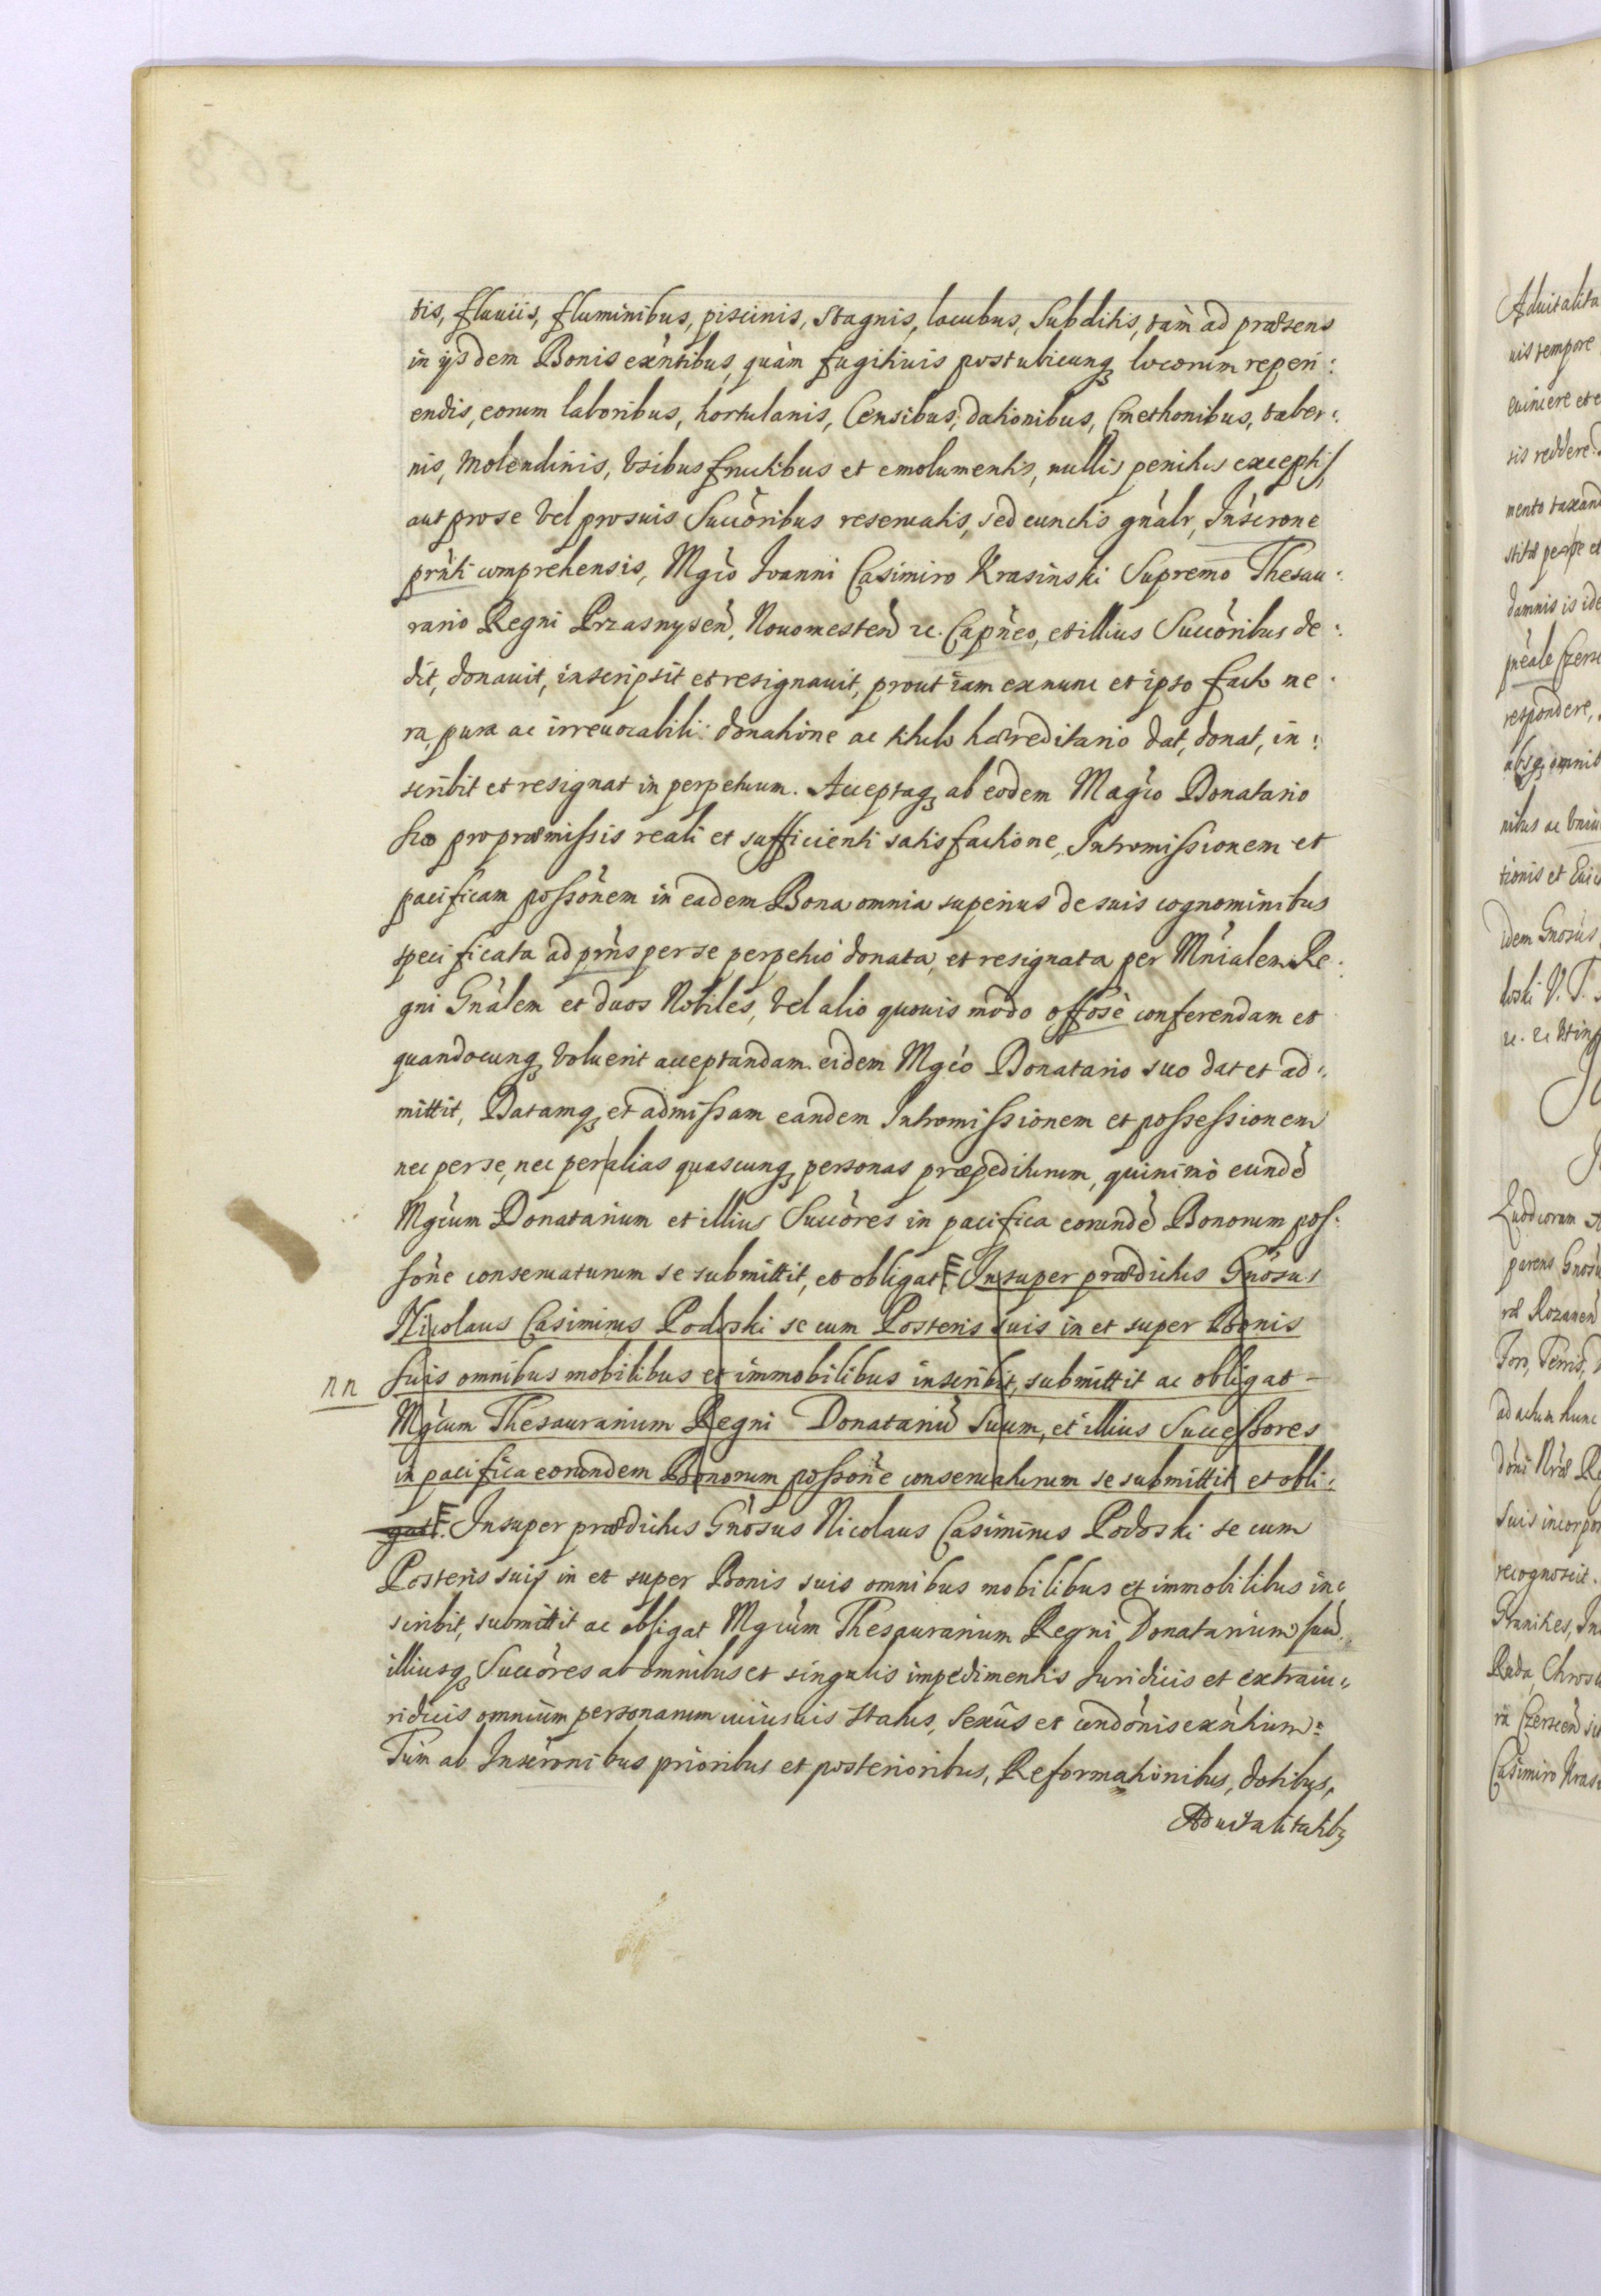 tis, fluuiis, fluminibus, piscinis, stagnis, lacubus, Subditis, tàm ad præsens
in ijsdem Bonis exñtibus, quàm fugitiuis postubicunq locorum reperi:
endis, eorum laboribus, hortulanis, Censibus, dationibus, Cmethonibus, taber:
nis, Molendinis, Vsibus fructibus et emolumentis, nullis penitus exceptis
aut pro se Vel pro suis Succoribus reseruatis, sed cunctis gnalr, Inscrone
prnti comprehensis, Mgco Ioanni Casimiro Krasinski Supremo Thesau:
rario Regni Przasnysen, Nouomesten etc. Capneo, et illius Succoribus de:
dit, donauit, inscripsit et resignauit, prout iam ex nunc et ipso facto ue:
ra, pura ac irreuocabili donatione ac titulo hæreditario dat, donat, in:
scribit et resignat in perpetuum. Acceptaq ab eodem Magco Donatario
suo pro præmissis reali et sufficienti satisfactione, Intromissionem et
pacificam possonem in eadem Bona omnia superius de suis cognominibus
specificata ad prns per se perpetuo donata et resignata per Mnialem Re:
gni Gnalem et duos Nobiles, Vel alio quouis modo offose conferendam et
quandocunq Voluerit acceptandam eidem Mgco Donatario suo dat et ad:
mittit, Datamq et admissam eandem Intromissionem et possessionem
nec per se, nec per alias quascunq personas præpediturum, quinimò eunde
Mgcum Donatarium et illius Succores in pacifica eorunde Bonorum pos:
sone conseruaturum se submittit, et obligat Insuper prædictus Gnosus
Nicolaus Casimirus Podoski se cum Posteris suis in et super Bonis
nn suis omnibus mobilibus et immobilibus inscribit, submittit ac obligat
Mgcum Thesaurarium Regni Donatariu Suum, et illius Successores
in pacifica eorundem Bonorum possone conseruaturum se submittit et obli:
gat. Insuper prædictus Gnosus Nicolaus Casimirus Podoski se cum
Posteris suis in et super Bonis suis omnibus mobilibus et immobilibus in:
scribit, submittit ac obligat Mgcum Thesaurarium Regni Donatarium suu
illiusq Succores ab omnibus et singulis impedimentis Juridicis et extraiu:
ridicis omnium personarum cuiusuis status, Sexus et condonis exntium:
Tum ab Inscronibus prioribus et posterioribus, Reformationibus, dotibus,
Aduitalitatib